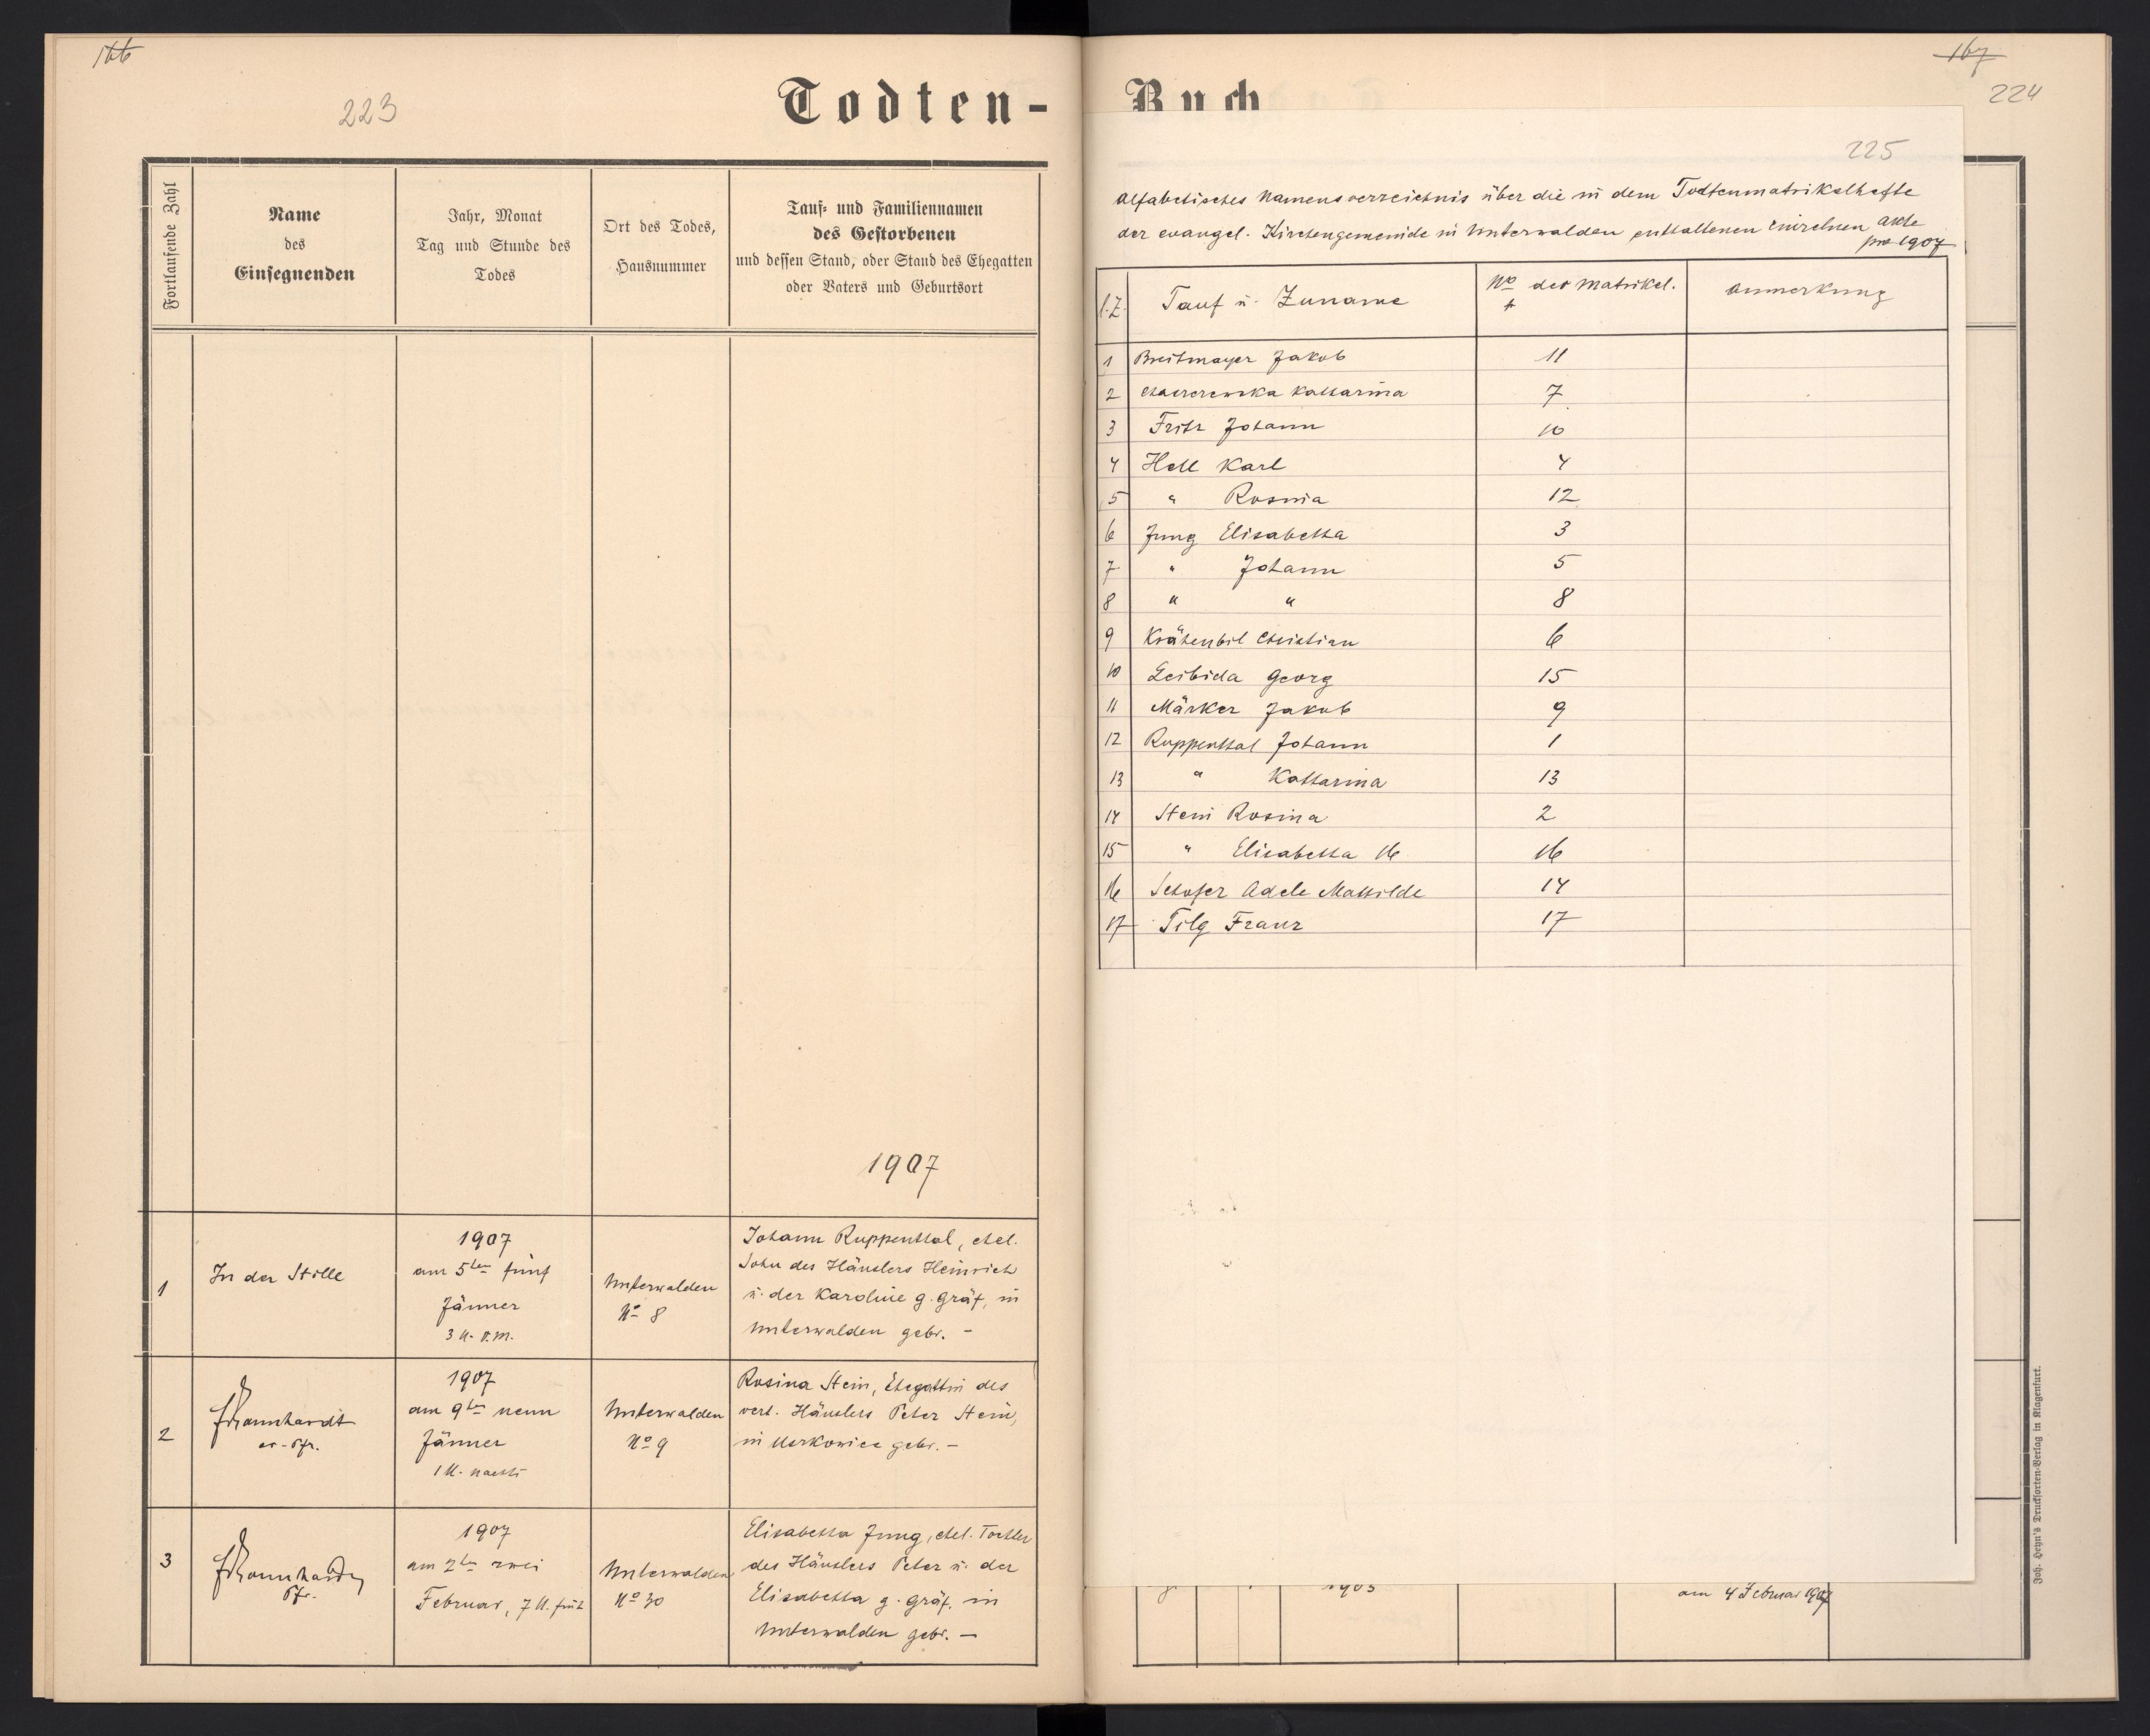 166
223
Todten-
Fortlaufende Zahl
Name
des
Einsegnenden
Jahr, Monat
Tag und Stunde des
Todes
Ort des Todes,
Hausnummer
Tauf- und Familiennamen
des Gestorbenen
und dessen Stand, oder Stand des Ehegatten
oder Vaters und Geburtsort
1907
1
In der Stille
1907
am 5ten fünf
Jänner
3 U. V.M.
Unterwalden
No 8
Johann Ruppenthal, ehel.
Sohn des Häuslers Heinrich
u. der Karoline g. Gräf, in
Unterwalden gebr. -
2
ev. Pfr.
1907
am 9ten neun
Jänner
1 U. nachts
Unterwalden
No 9
Rosina Stein, Ehegattin des
Häuslers Peter Stein,
in gebr. -
3
Pfr.
1907
am 2ten zwei
Februar, 7 U. früh
Unterwalden
No 30
Elisabetha Jung, ehel. Tochter
des Häuslers Peter u. der
Elisabetha g. Gräf, in
Unterwalden gebr. -
167
Buch
224
225
Alfabetisches Namensverzeichnis über die in dem Todtenmatrikelhefte
der evangel. Kirchengemeinde in Unterwalden enthaltenen einzelnen Akte
pro 1907
l.Z. Tauf u. Zuname No der Matrikel. Anmerkung
1 Breitmayer Jakob 11
2 Katharina 7
3 Fritz Johann 10
4 Hell Karl 4
5 " Rosina 12
6 Jung Elisabetha 3
7 " Johann 5
8 " " 8
9 Krähenbil Christian 6
10 Leibida Georg 15
11 Märker Jakob 9
12 Ruppenthal Johann 1
13 " Katharina 13
14 Stein Rosina 2
15 " Elisabetha 16 16
16 Schofer Adele Mathilde 14
17 Tilg Franz 17
am 4 Februar 1907
Joh. Heyn's Drucksorten-Verlag in Klagenfurt.